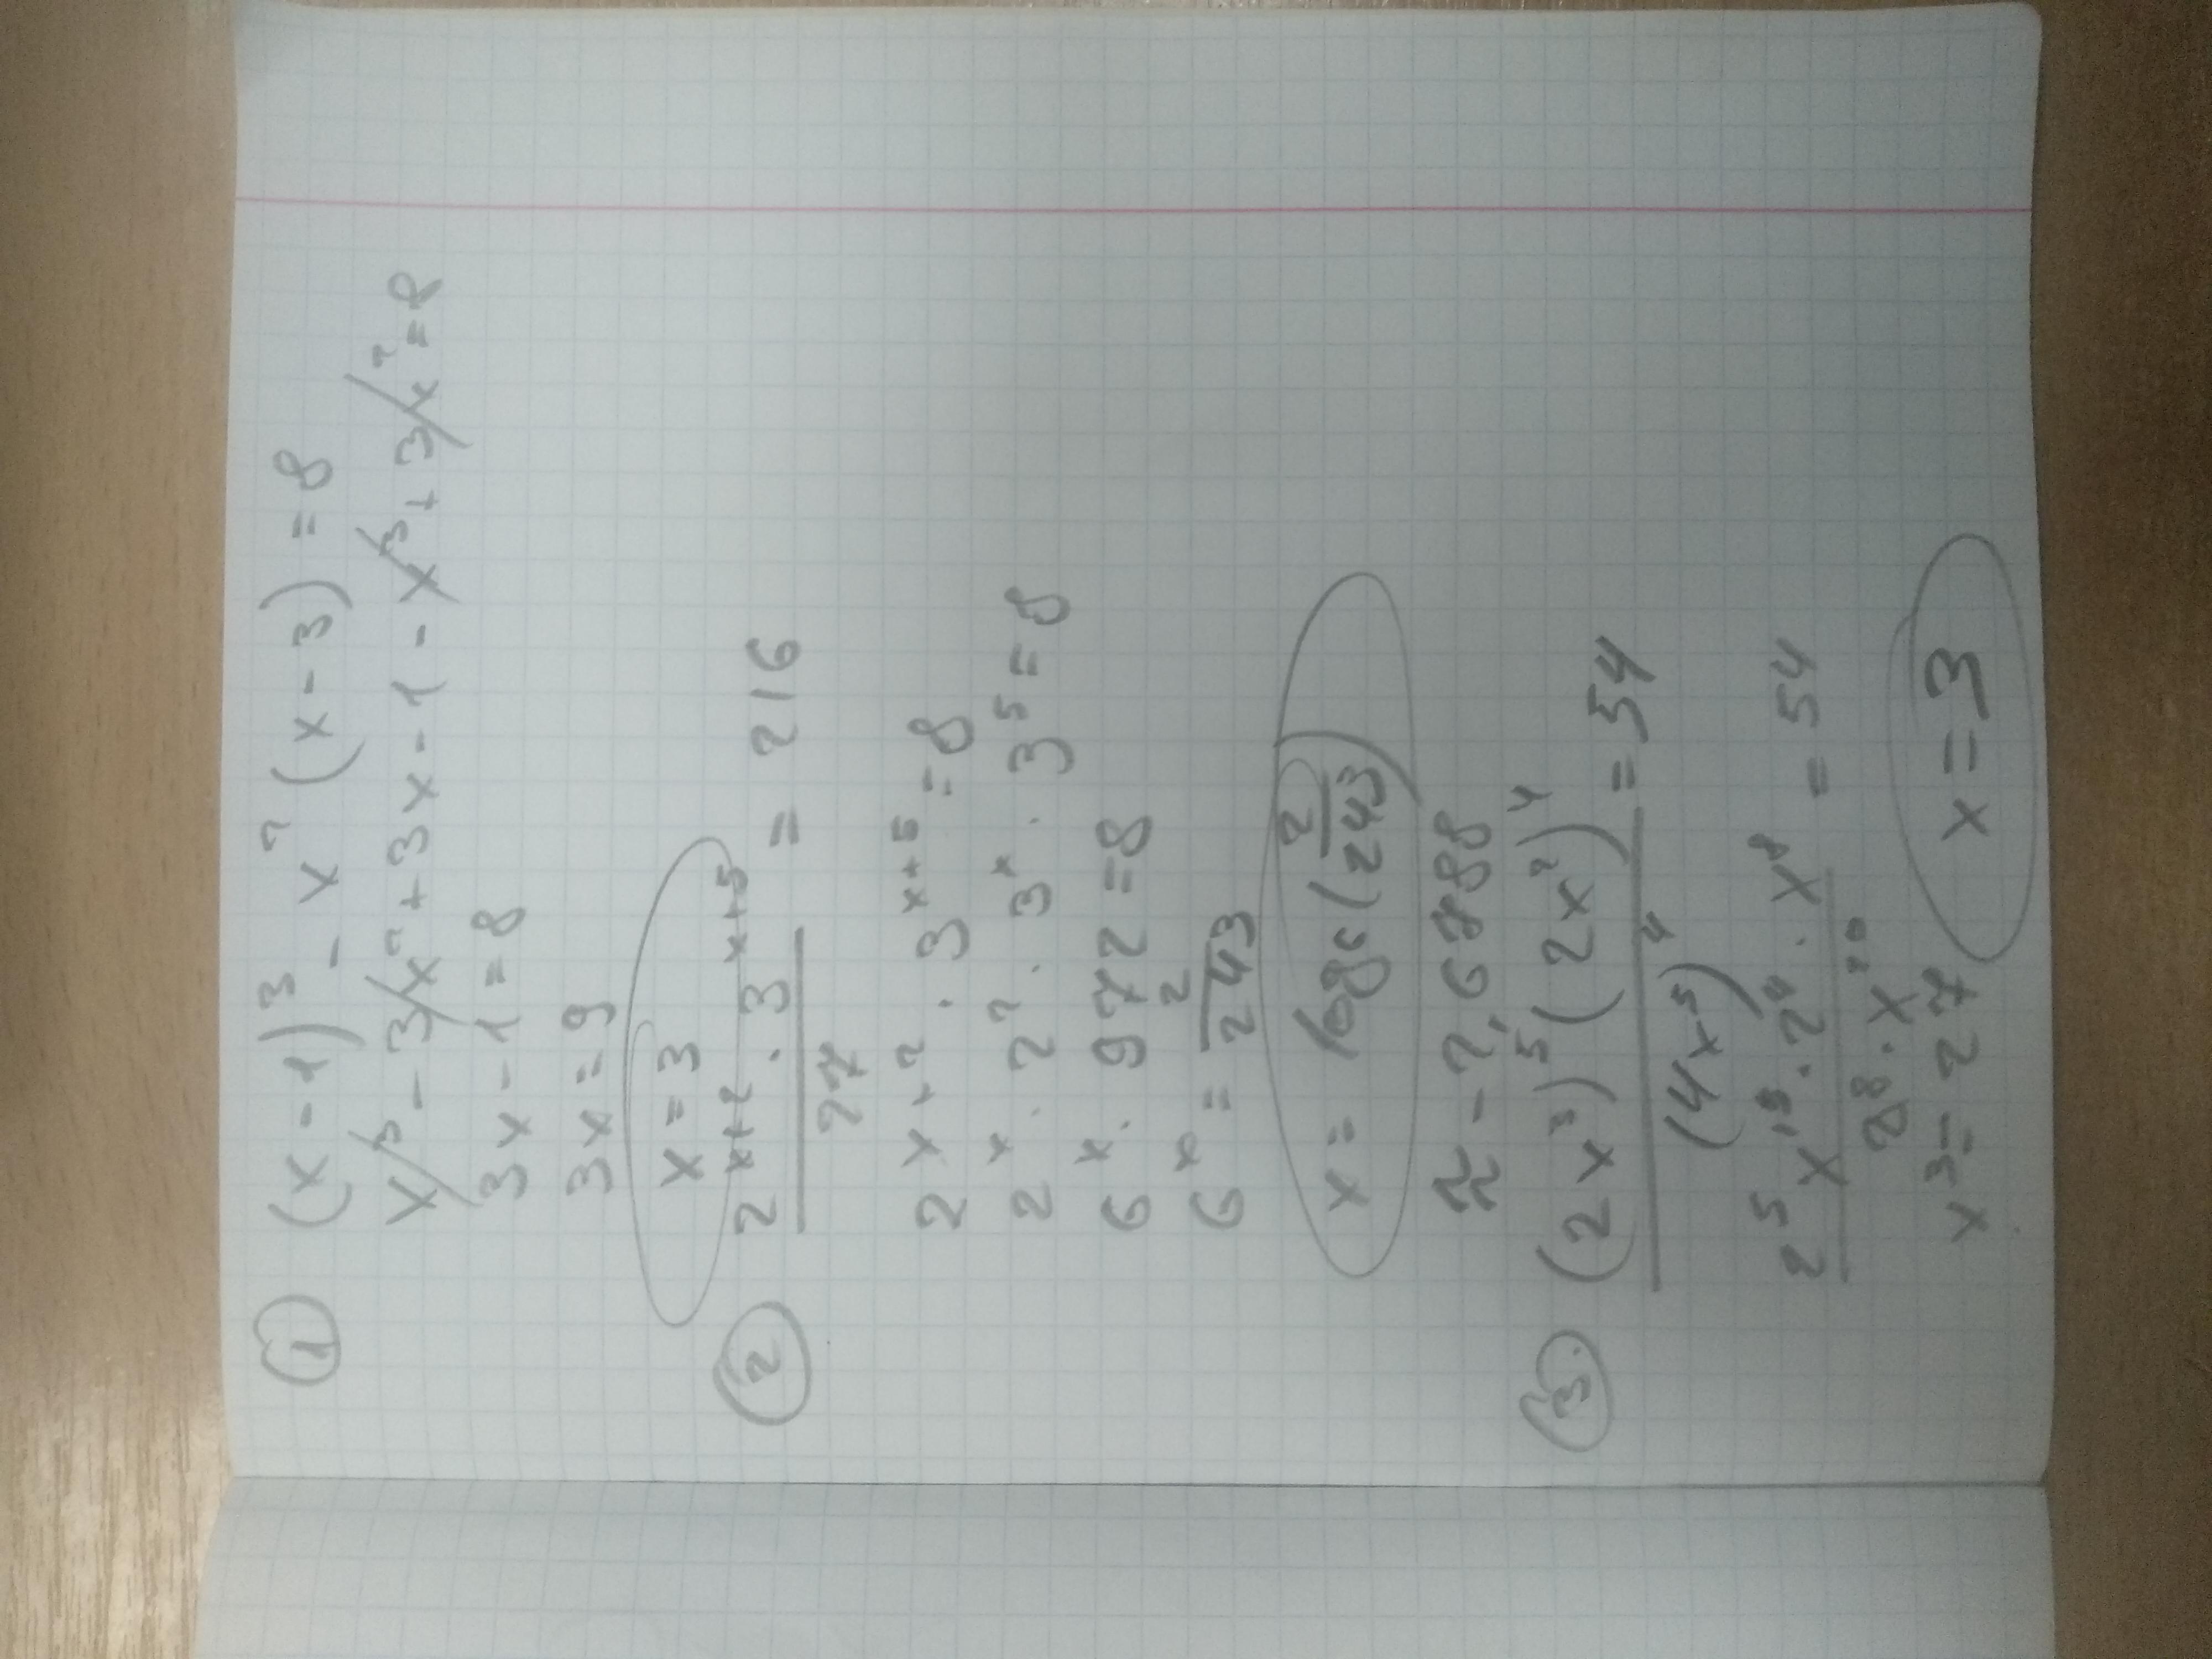 ① (x-1)³ - x² (x-3) = 8
x³ - 3x² + 3x - 1 - x³ + 3x² = 8
3x - 1 = 8
3x = 9
x = 3
② 2ˣ⁺² · 3ˣ⁺⁵ / 27 = 216
2ˣ⁺² · 3ˣ⁺⁵ = 8
2ˣ · 2² · 3ˣ · 3⁵ = 8
6ˣ · 972 = 8
6ˣ = 2/243
x = log₆(2/243)
≈ -2,6788
③. (2x³)⁵ (2x²)⁴ / (4x⁵)⁴ = 54
2⁵ x¹⁵ · 2⁴ · x⁸ / 2⁸ · x²⁰ = 54
x³ = 27 x = 3